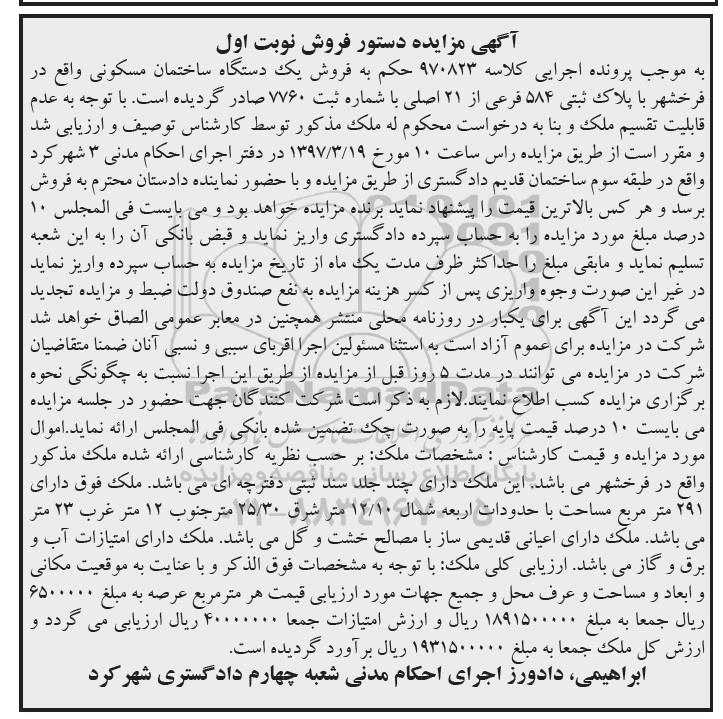 آگهی مزایده دستور فروش نوبت اول
به موجب پرونده اجرایی کلاسه ۹۷۰۸۲۳ حکم به فروش یک دستگاه ساختمان مسکونی واقع در
فرخشهر با پلاک ثبتی ۵۸۴ فرعی از ۲۱ اصلی با شماره ثبت ۷۷۶۰ صادر گردیده است. با توجه به عدم
قابلیت تقسیم ملک و بنا به درخواست محکوم له ملک مذکور توسط کارشناس توصیف و ارزیابی شد
و مقرر است از طریق مزایده راس ساعت ۱۰ مورخ ۱۳۹۷/۳/۱۹ در دفتر اجرای احکام مدنی ۳ شهرکرد
واقع در طبقه سوم ساختمان قدیم دادگستری از طریق مزایده و با حضور نماینده دادستان محترم به فروش
برسد و هر کس بالاترین قیمت را پیشنهاد نماید برنده مزایده خواهد بود و می بایست فی المجلس ۱۰
درصد مبلغ مورد مزایده را به حساب سپرده دادگستری واریز نماید و قبض بانکی آن را به این شعبه
تسلیم نماید و مابقی مبلغ را حداکثر ظرف مدت یک ماه از تاریخ مزایده به حساب سپرده واریز نماید
در غیر این صورت وجوه واریزی پس از کسر هزینه مزایده به نفع صندوق دولت ضبط و مزایده تجدید
می گردد این آگهی برای یکبار در روزنامه محلی منتشر همچنین در معابر عمومی الصاق خواهد شد
شرکت در مزایده برای عموم آزاد است به استثنا مسئولین اجرا اقربای سببی و نسبی آنان ضمنا متقاضیان
شرکت در مزایده می توانند در مدت ۵ روز قبل از مزایده از طریق این اجرا نسبت به چگونگی نحوه
برگزاری مزایده کسب اطلاع نمایند.لازم به ذکر است شرکت کنندگان جهت حضور در جلسه مزایده
می بایست ۱۰ درصد قیمت پایه را به صورت چک تضمین شده بانکی فی المجلس ارائه نماید.اموال
مورد مزایده و قیمت کارشناس : مشخصات ملک: بر حسب نظریه کارشناسی ارائه شده ملک مذکور
واقع در فرخشهر می باشد. این ملک دارای چند جلد سند ثبتی دفترچه ای می باشد. ملک فوق دارای
۲۹۱ متر مربع مساحت با حدودات اربعه شمال ۱۲/۱۰ متر شرق ۲۵/۳۰ مترجنوب ۱۲ متر غرب ۲۳ متر
می باشد. ملک دارای اعیانی قدیمی ساز با مصالح خشت و گل می باشد. ملک دارای امتیازات آب و
برق و گاز می باشد. ارزیابی کلی ملک: با توجه به مشخصات فوق الذکر و با عنایت به موقعیت مکانی
و ابعاد و مساحت و عرف محل و جمیع جهات مورد ارزیابی قیمت هر مترمربع عرصه به مبلغ ۶۵۰۰۰۰۰
ریال جمعا به مبلغ ۱۸۹۱۵۰۰۰۰۰ ریال و ارزش امتیازات جمعا ۴۰۰۰۰۰۰۰ ریال ارزیابی می گردد و
ارزش کل ملک جمعا به مبلغ ۱۹۳۱۵۰۰۰۰۰ ریال برآورد گردیده است.
ابراهیمی، دادورز اجرای احکام مدنی شعبه چهارم دادگستری شهرکرد
ParsNamadData
پایگاه اطلاع رسانی مناقصه و مزایده
۰۲۱-۸۸۳۴۹۶۷۰-۵